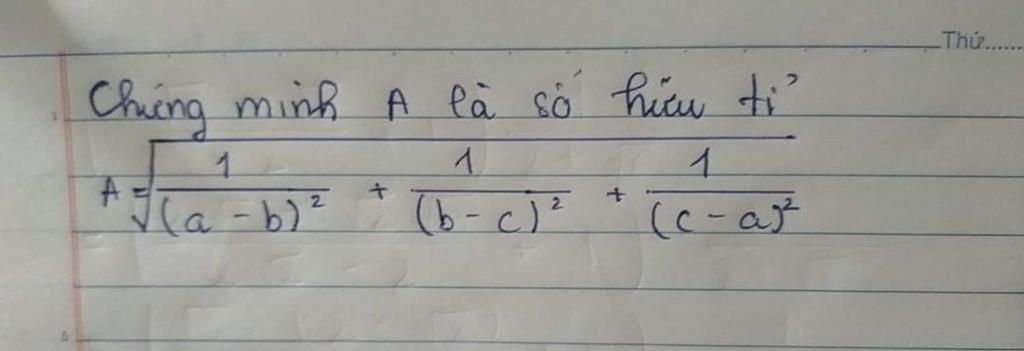 Thứ......
Chứng minh A là số hữu tỉ
A = √(1/(a - b)² + 1/(b - c)² + 1/(c - a)²)